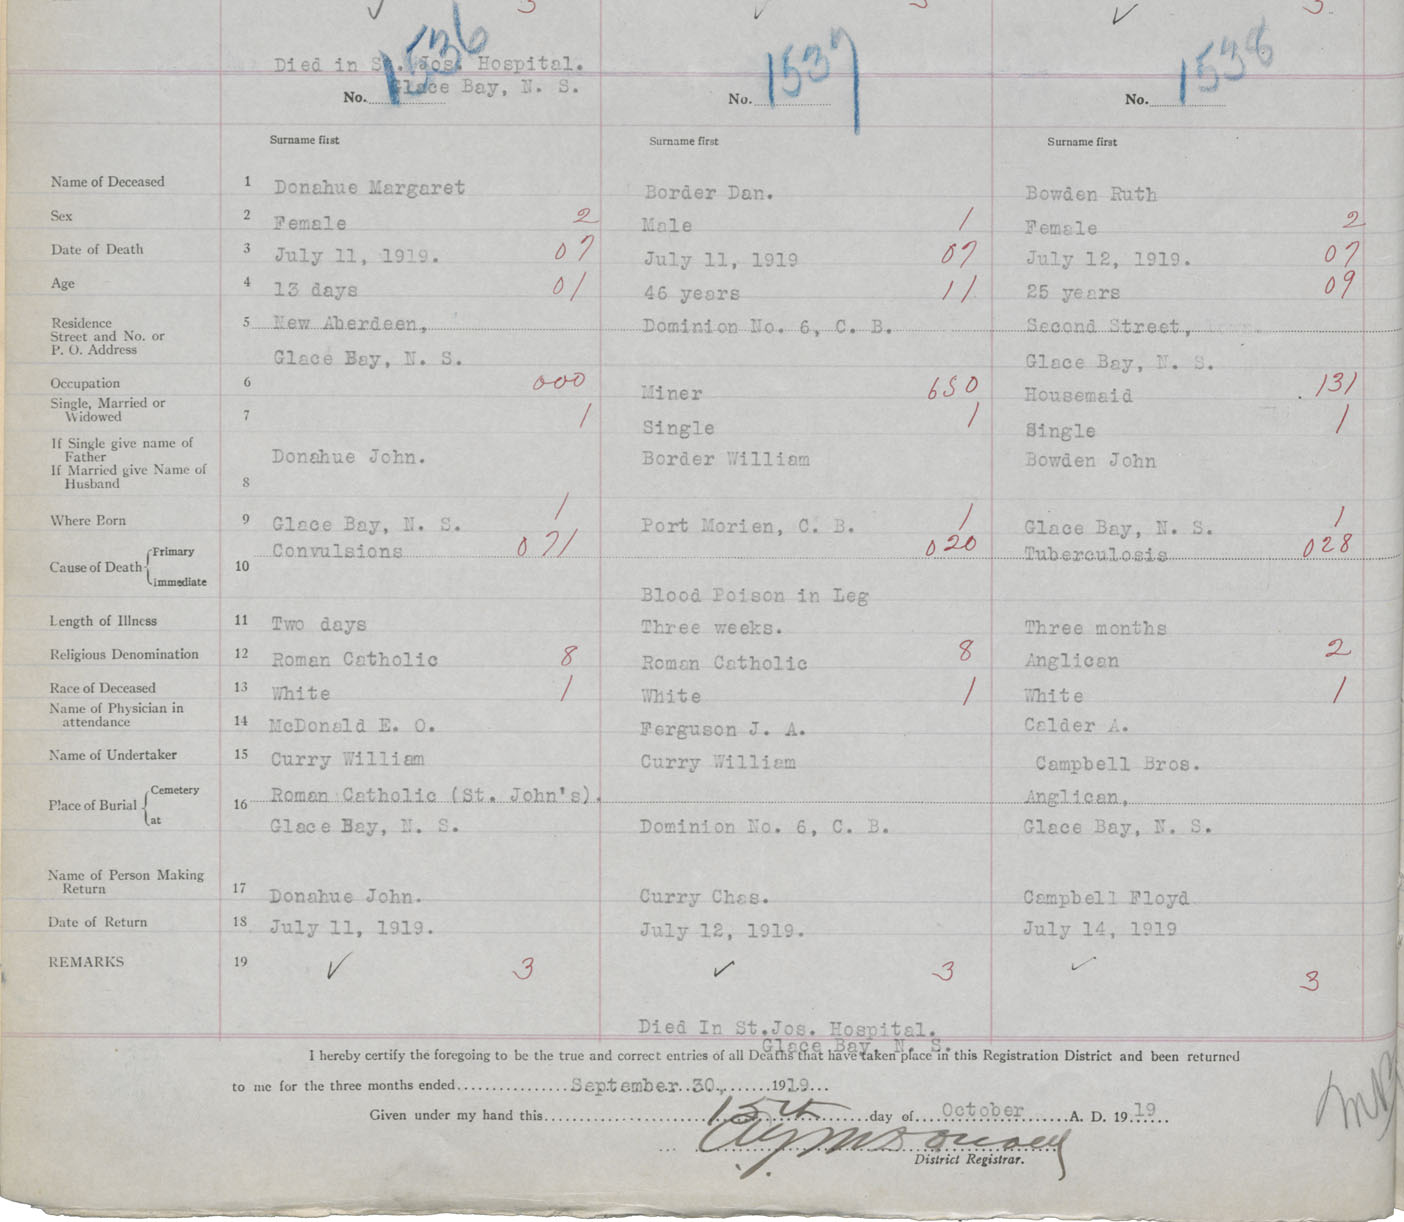 ✓ 3 ✓ 3 ✓ 3
1536 1537 1538
Died in St. Jos. Hospital.
Glace Bay, N. S.
No. No. No.
Surname first Surname first Surname first
Name of Deceased 1 Donahue Margaret Border Dan. Bowden Ruth
Sex 2 Female 2 Male 1 Female 2
Date of Death 3 July 11, 1919. 07 July 11, 1919 07 July 12, 1919. 07
Age 4 13 days 01 46 years 11 25 years 09
Residence 5 New Aberdeen, Dominion No. 6, C. B. Second Street,
Street and No. or
P. O. Address Glace Bay, N. S. Glace Bay, N. S.
Occupation 6 000 Miner 650 Housemaid 131
Single, Married or
Widowed 7 1 Single 1 Single 1
If Single give name of
Father Donahue John. Border William Bowden John
If Married give Name of
Husband 8
Where Born 9 Glace Bay, N. S. 1 Port Morien, C. B. 1 Glace Bay, N. S. 1
Primary Convulsions 071 020 Tuberculosis 028
Cause of Death 10
immediate Blood Poison in Leg
Length of Illness 11 Two days Three weeks. Three months
Religious Denomination 12 Roman Catholic 8 Roman Catholic 8 Anglican 2
Race of Deceased 13 White 1 White 1 White 1
Name of Physician in
attendance 14 McDonald E. O. Ferguson J. A. Calder A.
Name of Undertaker 15 Curry William Curry William Campbell Bros.
Cemetery Roman Catholic (St. John's). Anglican,
Place of Burial 16
at Glace Bay, N. S. Dominion No. 6, C. B. Glace Bay, N. S.
Name of Person Making
Return 17 Donahue John. Curry Chas. Campbell Floyd
Date of Return 18 July 11, 1919. July 12, 1919. July 14, 1919
REMARKS 19 ✓ 3 ✓ 3 ✓ 3
Died In St.Jos. Hospital.
Glace Bay, N. S.
I hereby certify the foregoing to be the true and correct entries of all Deaths that have taken place in this Registration District and been returned
to me for the three months ended September 30, 1919
Given under my hand this 15th day of October A. D. 1919
District Registrar.